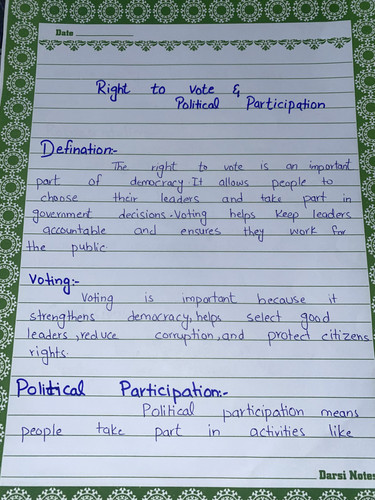 Date
Right to Vote &
Political Participation
Defination:-
The right to vote is an important
part of democracy It allows people to
choose their leaders and take part in
government decisions. Voting helps keep leaders
accountable and ensures they work for
the public.
Voting:-
Voting is important because it
strengthens democracy, helps select good
leaders, reduce corruption, and protect citizens
rights.
Political Participation:-
Political participation means
people take part in activities like
Darsi Notes